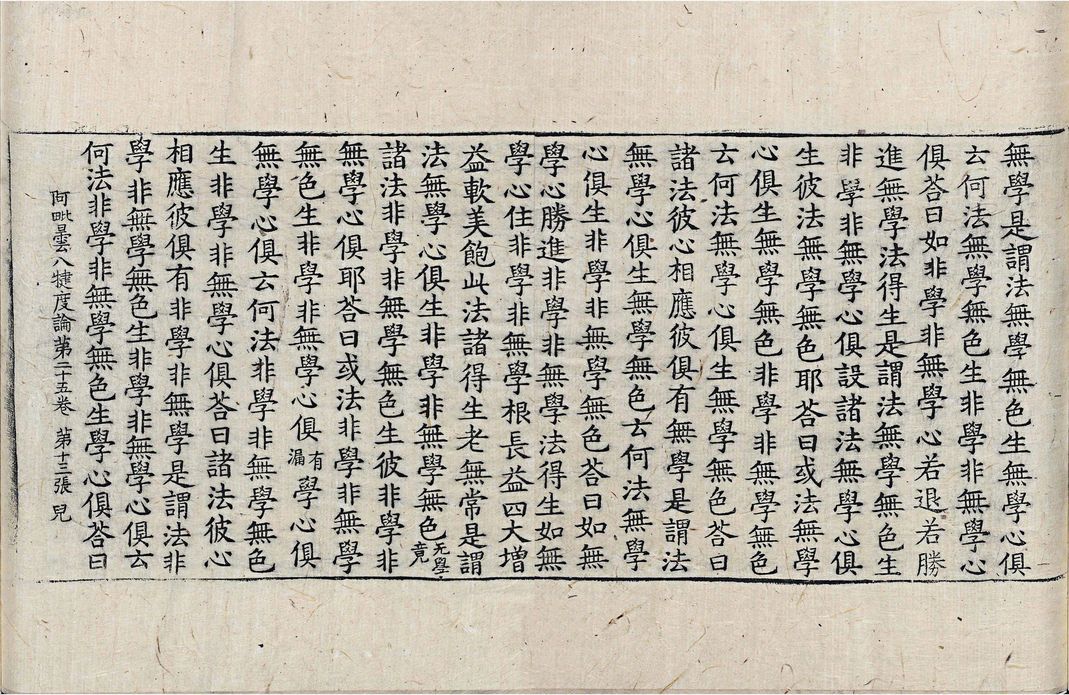 無學是謂法無學無色生無學心俱
云何法無學無色生非學非無學心
俱荅曰如非學非無學心若退若勝
進無學法得生是謂法無學無色生
非學非無學心俱設諸法無學心俱
生彼法無學無色耶荅曰或法無學
心俱生非無學無色非學非無學無色
云何法無學心俱生無學無色荅曰
諸法彼心相應彼俱有無學是謂法
無學心俱生無學無色云何法無學
心俱生非學非無學無色荅曰如無
學心勝進非學非無學法得生如無
學心住非學非無學根長益四大增
益軟美飽此法諸得生老無常是謂
法無學心俱生非學非無學無色无學竟
諸法非學非無學無色生彼非學非
無學心俱耶荅曰或法非學非無學
無色生非學非無學心俱有漏學心俱
無學心俱云何法非學非無學無色
生非學非無學心俱荅曰諸法彼心
相應彼俱有非學非無學是謂法非
學非無學無色生非學非無學心俱云
何法非學非無學無色生學心俱荅曰
阿毗曇八犍度論第二十五卷 第十三張 兒